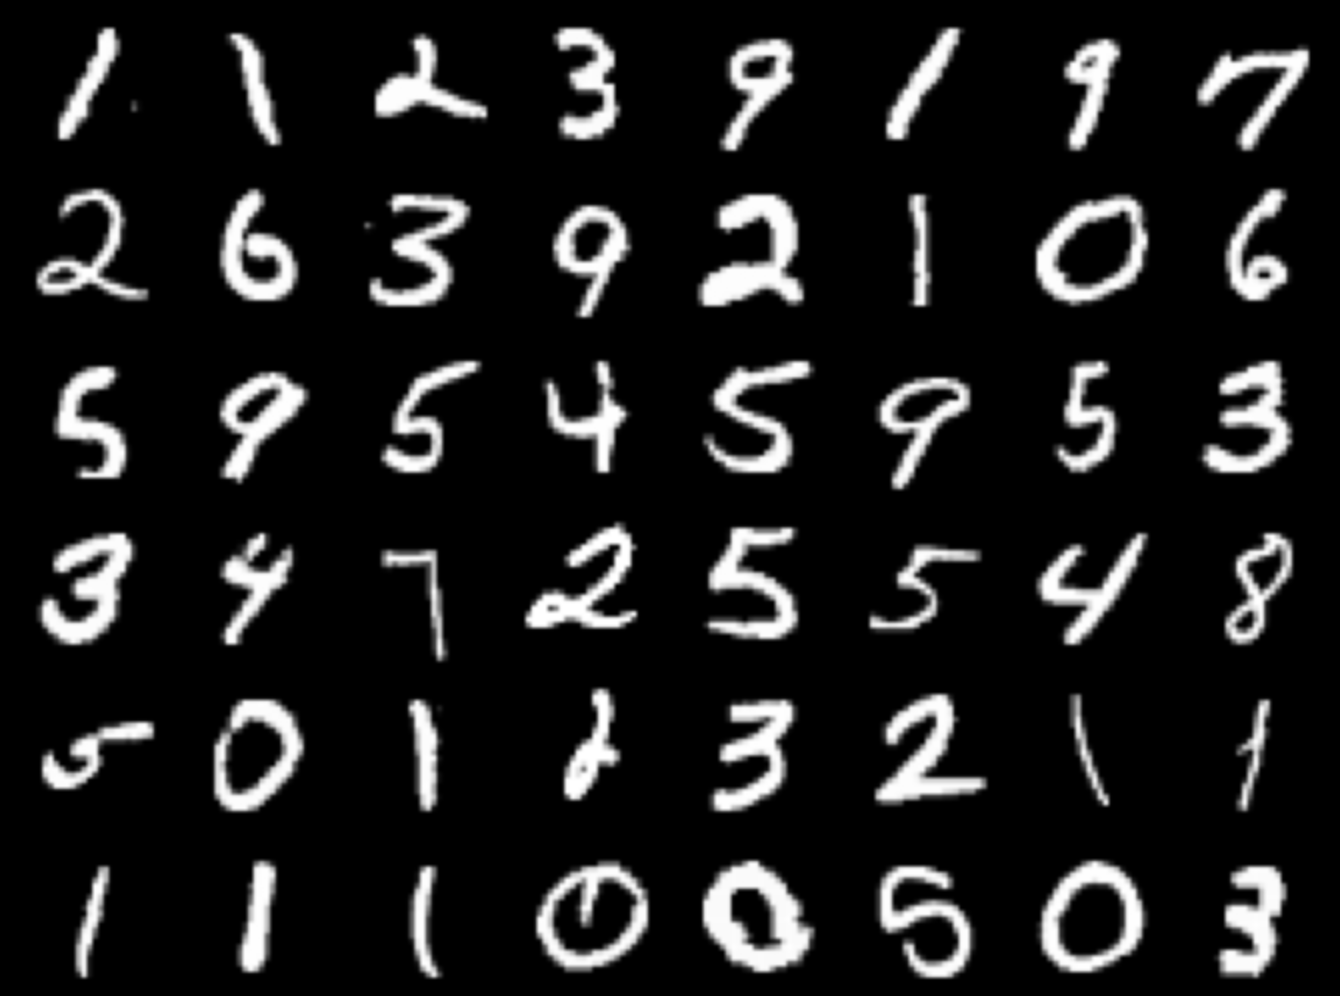 1 1 2 3 9 1 9 7
2 6 3 9 2 1 0 6
5 9 5 4 5 9 5 3
3 4 7 2 5 5 4 8
5 0 1 2 3 2 1 1
1 1 1 0 0 5 0 3